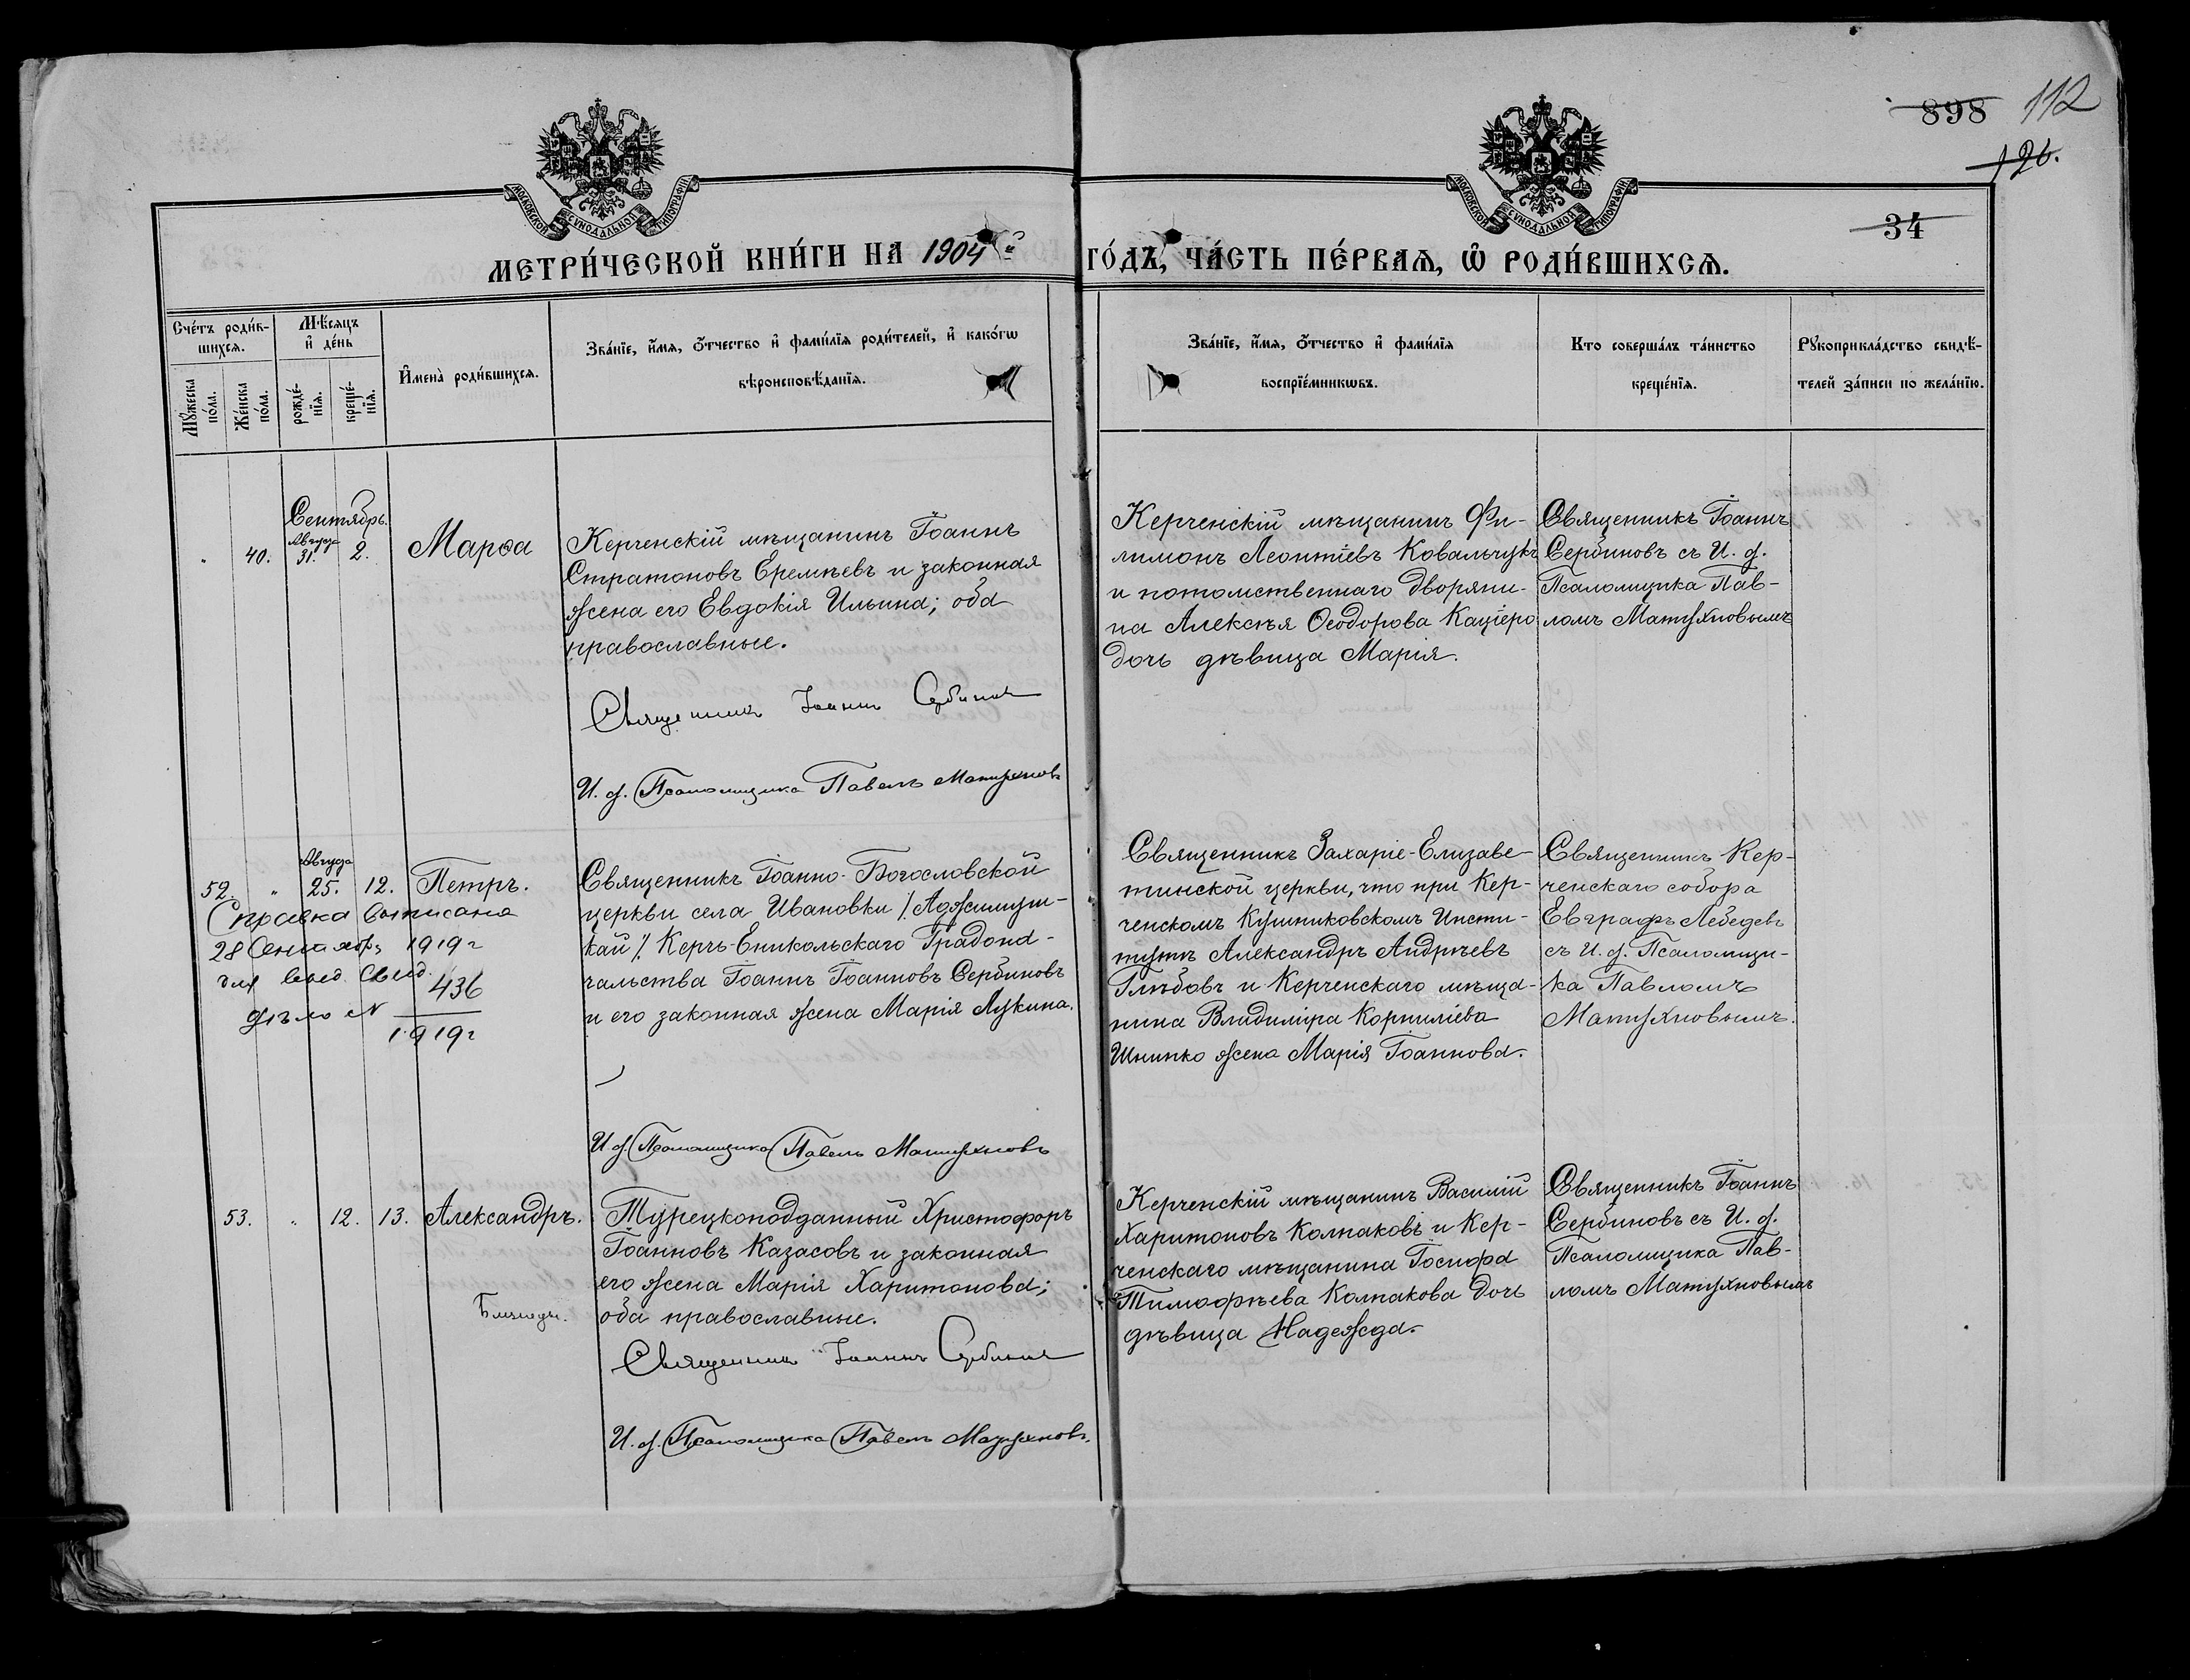 898 112
126.
34
МОСКОВСКОЙ СѴНОДАЛЬНОЙ ТИПОГРАФІИ
МОСКОВСКОЙ СѴНОДАЛЬНОЙ ТИПОГРАФІИ
МЕТРИ́ЧЕСКОЙ КНИ́ГИ НА 1904й ГО́ДЪ, ЧА́СТЬ ПЕ́РВАЯ, Ѡ҆ РОДИ́ВШИХСЯ.
Сче́тъ роди́в-
шихся.
Мꙋ́жеска
по́ла.
Же́нска
по́ла.
Мѣ́сяцъ
и҆ де́нь
рожде́-
нїя.
креще́-
нїя.
И҆мена̀ роди́вшихся.
Зва́нїе, и҆́мя, ѻ҆́тчество и҆ фами́лїя роди́телей, и҆ како́гѡ
вѣроисповѣ́данїя.
Зва́нїе, и҆́мя, ѻ҆́тчество и҆ фами́лїя
воспрїе́мникѡвъ.
Кто соверша́лъ та́инство
креще́нїя.
Рꙋкоприкла́дство свидѣ́-
телей за́писи по жела́нїю.
Сентябрь.
" 40. Августа 31. 2. Марѳа
Керченскій мѣщанинъ Іоаннъ
Стратоновъ Еремѣевъ и законная
жена его Евдокія Ильина; оба
православные.
Священникъ Іоаннъ Сербиновъ
И. д. Псаломщика Павелъ Матухновъ
Керченскій мѣщанинъ Фи-
лимонъ Леонтіевъ Ковальчукъ
и потомственнаго дворяни-
на Алексѣя Ѳеодорова Каціеро
дочь дѣвица Марія.
Священникъ Іоаннъ
Сербиновъ съ И. д.
Псаломщика Пав-
ломъ Матухновымъ
52. " Августа 25. 12. Петръ.
Справка выписана
28 Сентября 1919 г
для Свид.
дѣло N 436
1919 г
Священникъ Іоанно-Богословской
церкви села Ивановки /. Аджимуш-
кай /. Керчь-Еникольскаго Градона-
чальства Іоаннъ Іоанновъ Сербиновъ
и его законная жена Марія Лукина.
И д. Псаломщика Павелъ Матухновъ
Священникъ Захаріе-Елизаве-
тинской церкви, что при Кер-
ченскомъ Кушниковскомъ Инсти-
тутѣ Александръ Андрѣевъ
Глѣбовъ и Керченскаго мѣща-
нина Владиміра Корниліева
жена Марія Іоаннова.
Священникъ Кер-
ченскаго собора
Евграфъ Лебедевъ
съ И. д. Псаломщи-
ка Павломъ
Матухновымъ.
53. " 12. 13. Александръ.
Близнецъ.
Турецкоподданный Христофоръ
Іоанновъ Казасовъ и законная
его жена Марія Харитонова;
оба православные.
Священникъ Іоаннъ Сербиновъ
И. д. Псаломщика Павелъ Матухновъ.
Керченскій мѣщанинъ Василій
Харитоновъ Колпаковъ и Кер-
ченскаго мѣщанина Іосифа
Тимофѣева Колпакова дочь
дѣвица Надежда.
Священникъ Іоаннъ
Сербиновъ съ И. д.
Псаломщика Пав-
ломъ Матухновымъ